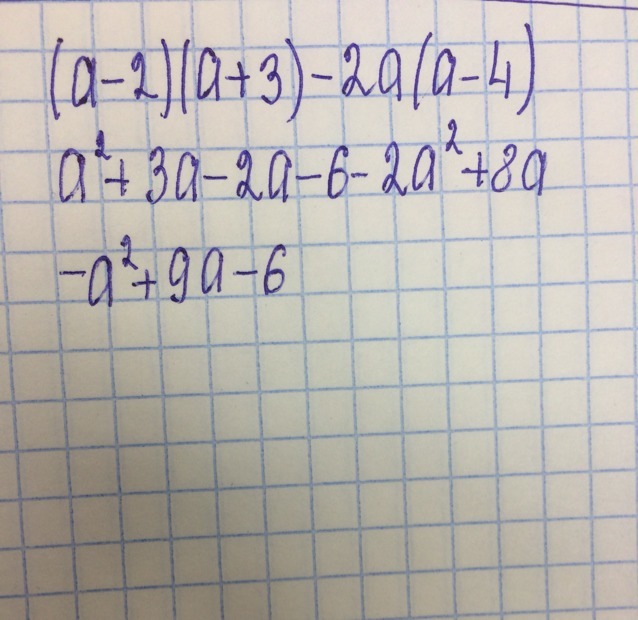 (a-2)(a+3)-2a(a-4)
a²+3a-2a-6-2a²+8a
-a²+9a-6